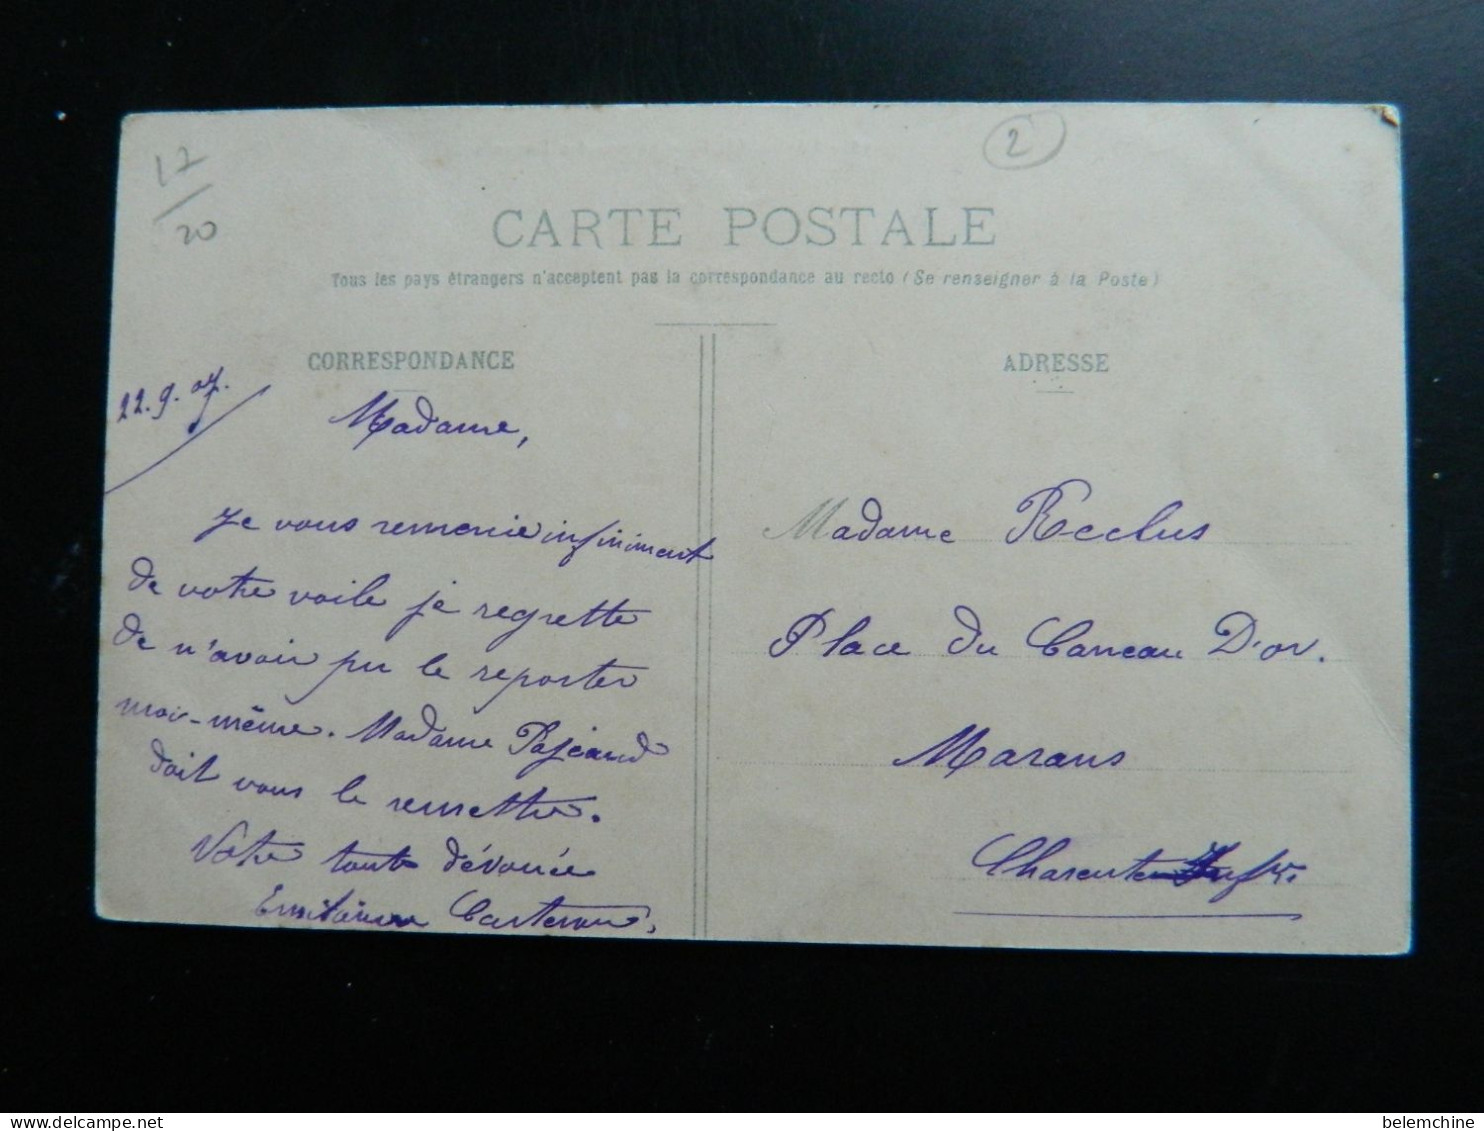 17
20
2
CARTE POSTALE
Tous les pays étrangers n'acceptent pas la correspondance au recto (Se renseigner à la Poste)
CORRESPONDANCE
22.9.07.
Madame,
Je vous remercie infiniment
de votre voile je regrette
de n'avoir pu le reporter
moi-même. Madame Pajeaud
doit vous le remettre.
Votre toute dévouée
ADRESSE
Madame Reclus
Place du Carreau D'or.
Marans
Charente Infre.
belemchine